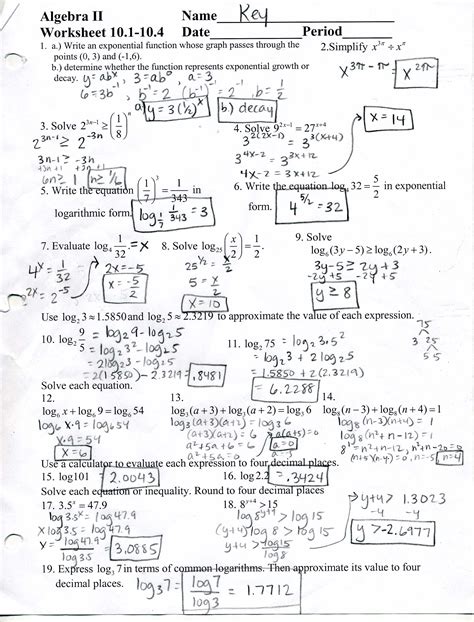 Algebra II Name Key
Worksheet 10.1-10.4 Date Period
1. a.) Write an exponential function whose graph passes through the points (0, 3) and (-1,6).
b.) determine whether the function represents exponential growth or decay. y = abˣ, 3 = ab⁰, a = 3,
6 = 3b⁻¹, b⁻¹ = 2, b = 1/2
a.) y = 3(½)ˣ b.) decay
2. Simplify x^(3π) ÷ x^π
x^(3π - π) = x^(2π)
3. Solve 2^(3n-1) ≥ (1/8)ⁿ
2^(3n-1) ≥ 2^(-3n)
3n-1 ≥ -3n
+3n +1 +3n +1
6n ≥ 1 n ≥ 1/6
4. Solve 9^(2x-1) = 27^(x+4)
3^(2(2x-1)) = 3^(3(x+4))
3^(4x-2) = 3^(3x+12)
4x-2 = 3x+12
x = 14
5. Write the equation (1/7)³ = 1/343 in
logarithmic form. log_(1/7) 1/343 = 3
6. Write the equation log₄ 32 = 5/2 in exponential
form. 4^(5/2) = 32
7. Evaluate log₄ 1/32. = x
4ˣ = 1/32
2^(2x) = 2⁻⁵
2x = -5
x = -5/2
8. Solve log₂₅ (x/2) = 1/2.
25^(1/2) = x/2
5 = x/2
x = 10
9. Solve
log₆(3y - 5) ≥ log₆(2y + 3).
3y - 5 ≥ 2y + 3
-2y +5 -2y +5
y ≥ 8
Use log₂ 3 ≈ 1.5850 and log₂ 5 ≈ 2.3219 to approximate the value of each expression.
10. log₂ 9/5 = log₂ 9 - log₂ 5
= log₂ 3² - log₂ 5
= 2log₂ 3 - log₂ 5
= 2(1.5850) - 2.3219 = .8481
11. log₂ 75 = log₂ 3·5²
= log₂ 3 + 2log₂ 5
= 1.5850 + 2(2.3219)
= 6.2288
75
3 25
5 5
Solve each equation.
12.
log₆ x + log₆ 9 = log₆ 54
log₆ x·9 = log₆ 54
x·9 = 54
x = 6
13.
log₃(a + 3) + log₃(a + 2) = log₃ 6
log₃(a+3)(a+2) = log₃ 6
(a+3)(a+2) = 6
a² + 5a + 6 = 6
a² + 5a = 0
a(a+5) = 0
a = 0
14.
log₈(n - 3) + log₈(n + 4) = 1
log₈(n-3)(n+4) = 1
log₈(n² + n - 12) = 1
8¹ = n² + n - 12, n² + n - 20 = 0
(n+5)(n-4) = 0, n = -5, n = 4
Use a calculator to evaluate each expression to four decimal places.
15. log101 = 2.0043
16. log2.2 = .3424
Solve each equation or inequality. Round to four decimal places
17. 3.5ˣ = 47.9
log 3.5ˣ = log 47.9
x log 3.5 = log 47.9
x = log 47.9/log 3.5 = 3.0885
18. 8^(y+4) > 15
log 8^(y+4) > log 15
(y+4) log 8 > log 15
y+4 > log 15/log 8
y+4 > 1.3023
-4 -4
y > -2.6977
19. Express log₃ 7 in terms of common logarithms. Then approximate its value to four
decimal places. log₃ 7 = log 7/log 3 = 1.7712